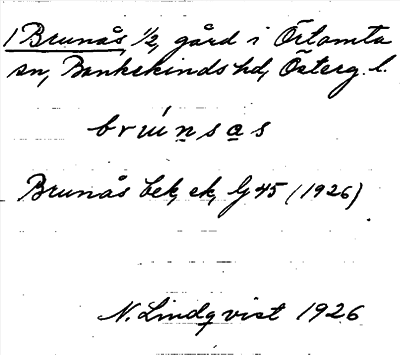 1 Brunås, 1/2, gård i Örtomta
sn, Bankekinds hd, Österg. l.
brúnsas
Brunås bek, ek, lj 45 (1926)
N. Lindqvist 1926